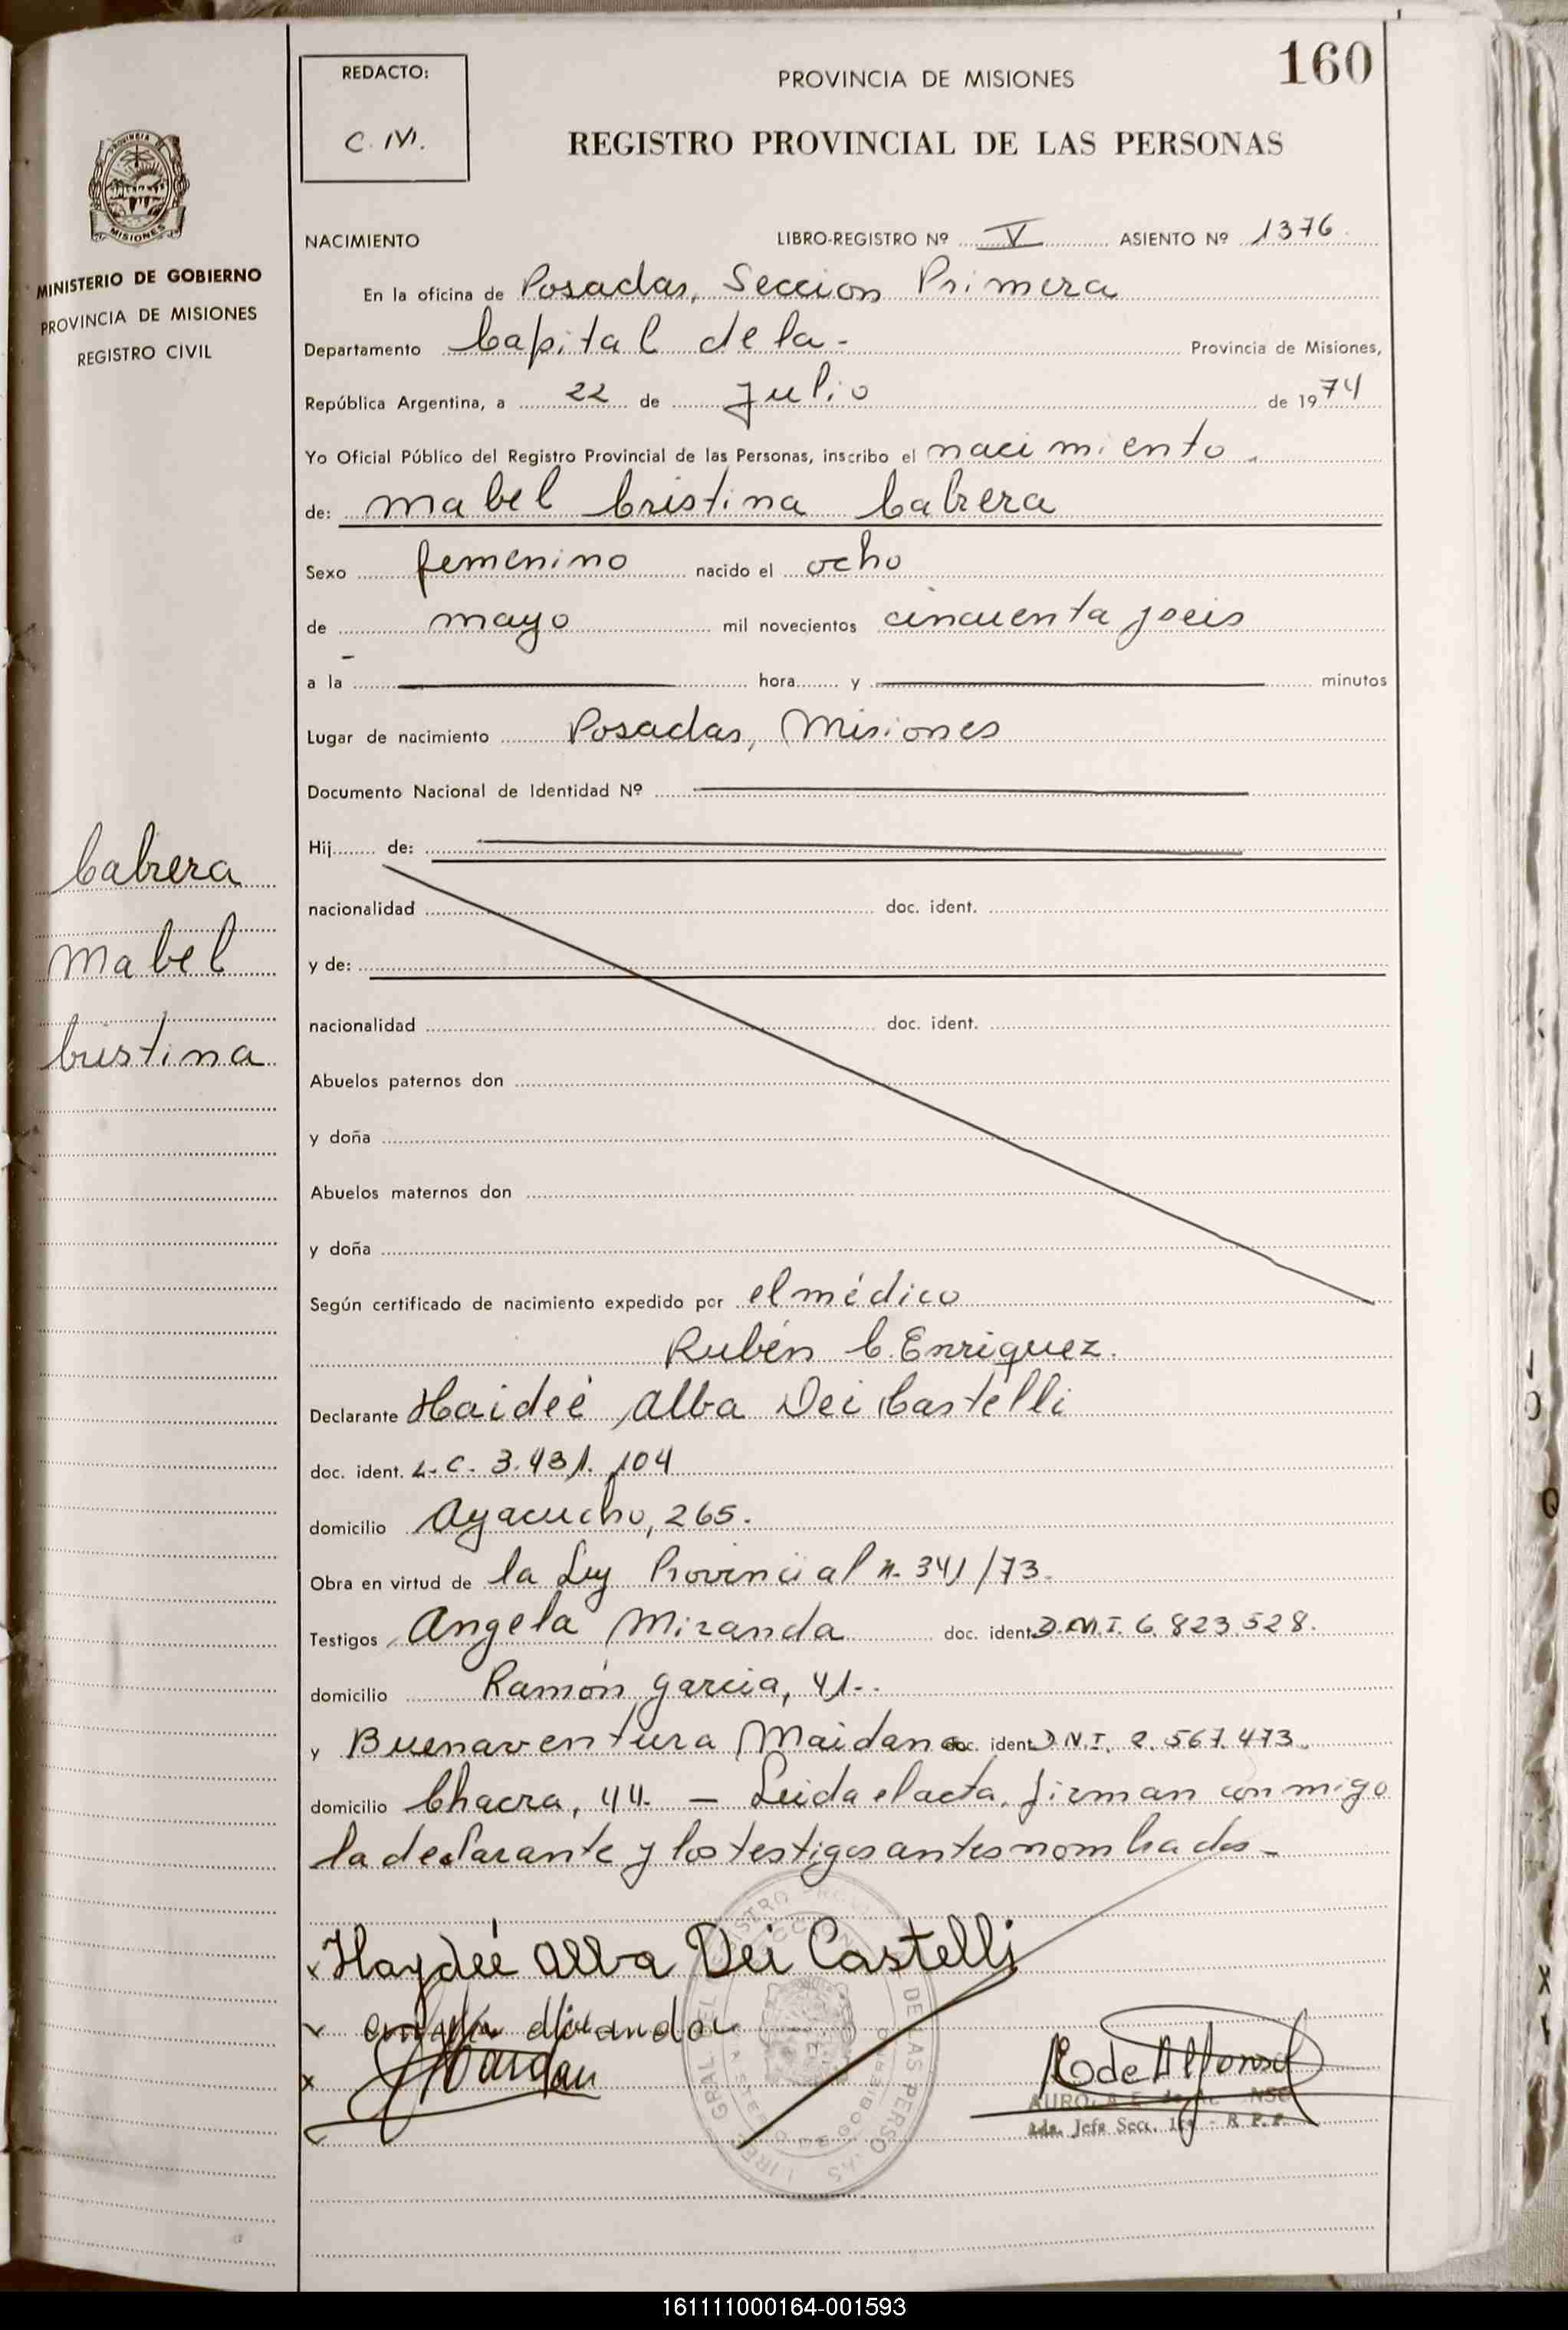 160
REDACTO:
C. M.
PROVINCIA DE MISIONES
REGISTRO PROVINCIAL DE LAS PERSONAS
MISIONES
MINISTERIO DE GOBIERNO
PROVINCIA DE MISIONES
REGISTRO CIVIL
NACIMIENTO LIBRO-REGISTRO Nº V ASIENTO Nº 1376
En la oficina de Posadas, Seccion Primera
Departamento Capital de la - Provincia de Misiones,
República Argentina, a 22 de Julio de 1974
Yo Oficial Público del Registro Provincial de las Personas, inscribo el nacimiento
de: Mabel Cristina Cabrera
Sexo femenino nacido el ocho
de mayo mil novecientos cincuenta y seis
a la hora y minutos
Lugar de nacimiento Posadas, Misiones
Documento Nacional de Identidad Nº
Hij de:
nacionalidad doc. ident.
y de:
nacionalidad doc. ident.
Abuelos paternos don
y doña
Abuelos maternos don
y doña
Cabrera
Mabel
Cristina
Según certificado de nacimiento expedido por el médico
Rubén C. Enriquez.
Declarante Haideé Alba Dei Castelli
doc. ident. L. C. 3.431.104
domicilio Ayacucho, 265.
Obra en virtud de la Ley Provincial n. 341/73.
Testigos Angela Miranda doc. ident. D.N.I. 6.823.528.
domicilio Ramón Garcia, 41.
y Buenaventura Maidana doc. ident. D.N.I. 2.567.473.
domicilio Chacra, 44. — Leida el acta, firman conmigo
la declarante y los testigos antes nombrados -
x Haydeé Alba Dei Castelli
Miranda
x Maidan
R de Alfonso
Jefe Secc. 1ra - R. P. P.
161111000164-001593